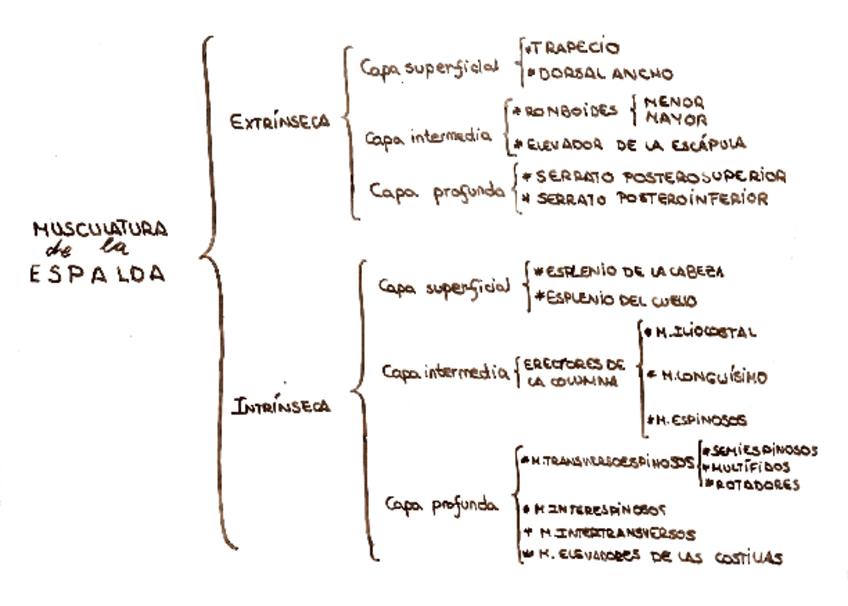 MUSCULATURA
de la
ESPALDA
EXTRÍNSECA
Capa superficial
*TRAPECIO
*DORSAL ANCHO
Capa intermedia
*ROMBOIDES
MENOR
MAYOR
*ELEVADOR DE LA ESCÁPULA
Capa profunda
*SERRATO POSTEROSUPERIOR
*SERRATO POSTEROINFERIOR
INTRÍNSECA
Capa superficial
*ESPLENIO DE LA CABEZA
*ESPLENIO DEL CUELLO
Capa intermedia
ERECTORES DE
LA COLUMNA
*M.ILIOCOSTAL
*M.LONGUÍSIMO
*M.ESPINOSOS
Capa profunda
*M.TRANSVERSOESPINOSOS
*SEMIESPINOSOS
*MULTÍFIDOS
*ROTADORES
*M.INTERESPINOSOS
*M.INTERTRANSVERSOS
*M.ELEVADORES DE LAS COSTILLAS